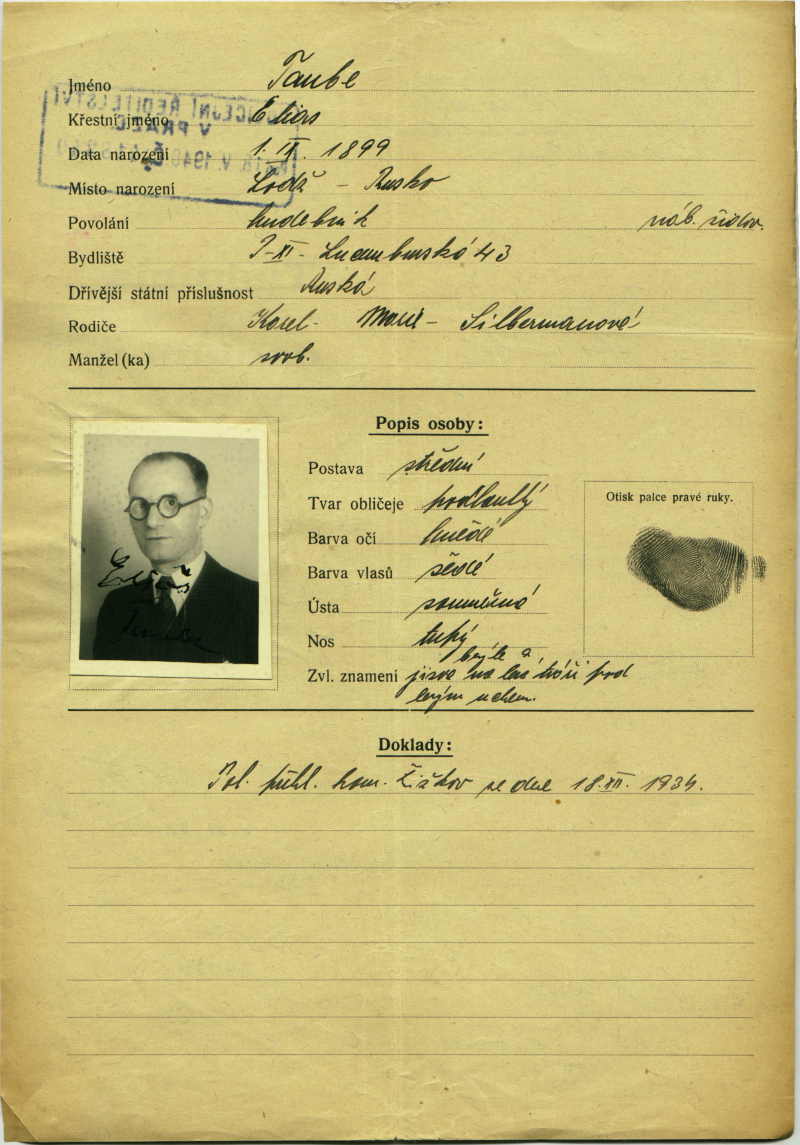 Jméno Taube
Křestní jméno Elias
Data narození 1. IX. 1899
Místo narození Lodž - Rusko
Povolání hudebník náb. židov.
Bydliště P-XI- Lucemburská 43
Dřívější státní příslušnost Ruská
Rodiče Karel - Marie - Silbermanová
Manžel(ka) svob.
Popis osoby:
Postava střední
Tvar obličeje podlouhlý
Barva očí hnědé
Barva vlasů šedé
Ústa souměrná
Nos tupý
brýle a
Zvl. znamení jizva na tváři pod
levým uchem.
Otisk palce pravé ruky.
Eliáš
Taube
Doklady:
Pol. přihl. kom. Žižkov ze dne 18. XII. 1934.